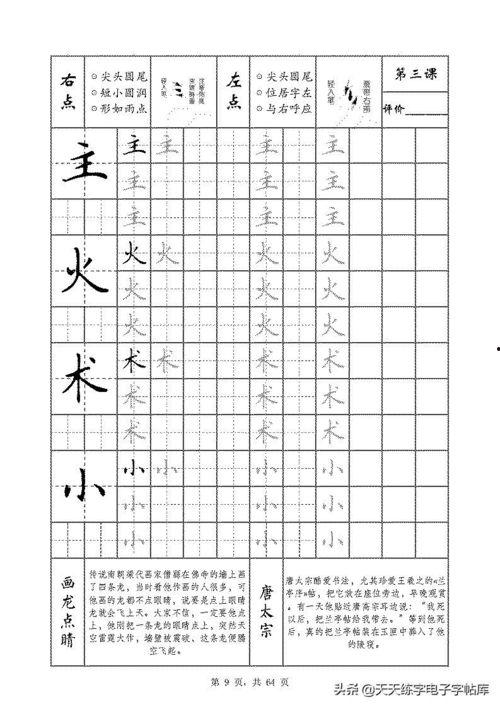 右点
◎尖头圆尾
◎短小圆润
◎形如雨点
轻入笔
左点
◎尖头圆尾
◎位居字左
◎与右呼应
轻入笔
第三课
评价
主 主 主 主 主
主 主 主
主 主 主
火 火 火 火 火
火 火 火
火 火 火
术 术 术 术 术
术 术 术
术 术 术
小 小 小 小 小
小 小 小
小 小 小
画龙点睛
传说南朝梁代画家僧繇在佛寺的墙上画
了四条龙，当时看他作画的人很多，可
他画的龙都不点眼睛，说要是点上眼睛
龙就会飞上天。大家不信，一定要他点
上，他刚把一条龙的眼睛点上，突然天
空雷霆大作，墙壁被震破、这条龙便腾
空飞起。
唐太宗
唐太宗酷爱书法，尤其珍爱王羲之的《兰
亭序》帖，把它放在座位旁边，早晚观赏
。有一天他贴近唐高宗耳边说：“我死
以后，把兰亭帖给我带去。”等到他死
后，真的把兰亭帖装在玉匣中葬入了他
的陵寝。
第 9 页，共 64 页
头条 @天天练字电子字帖库